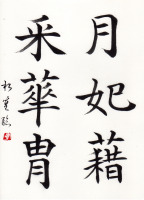 月妃藉
采華胄